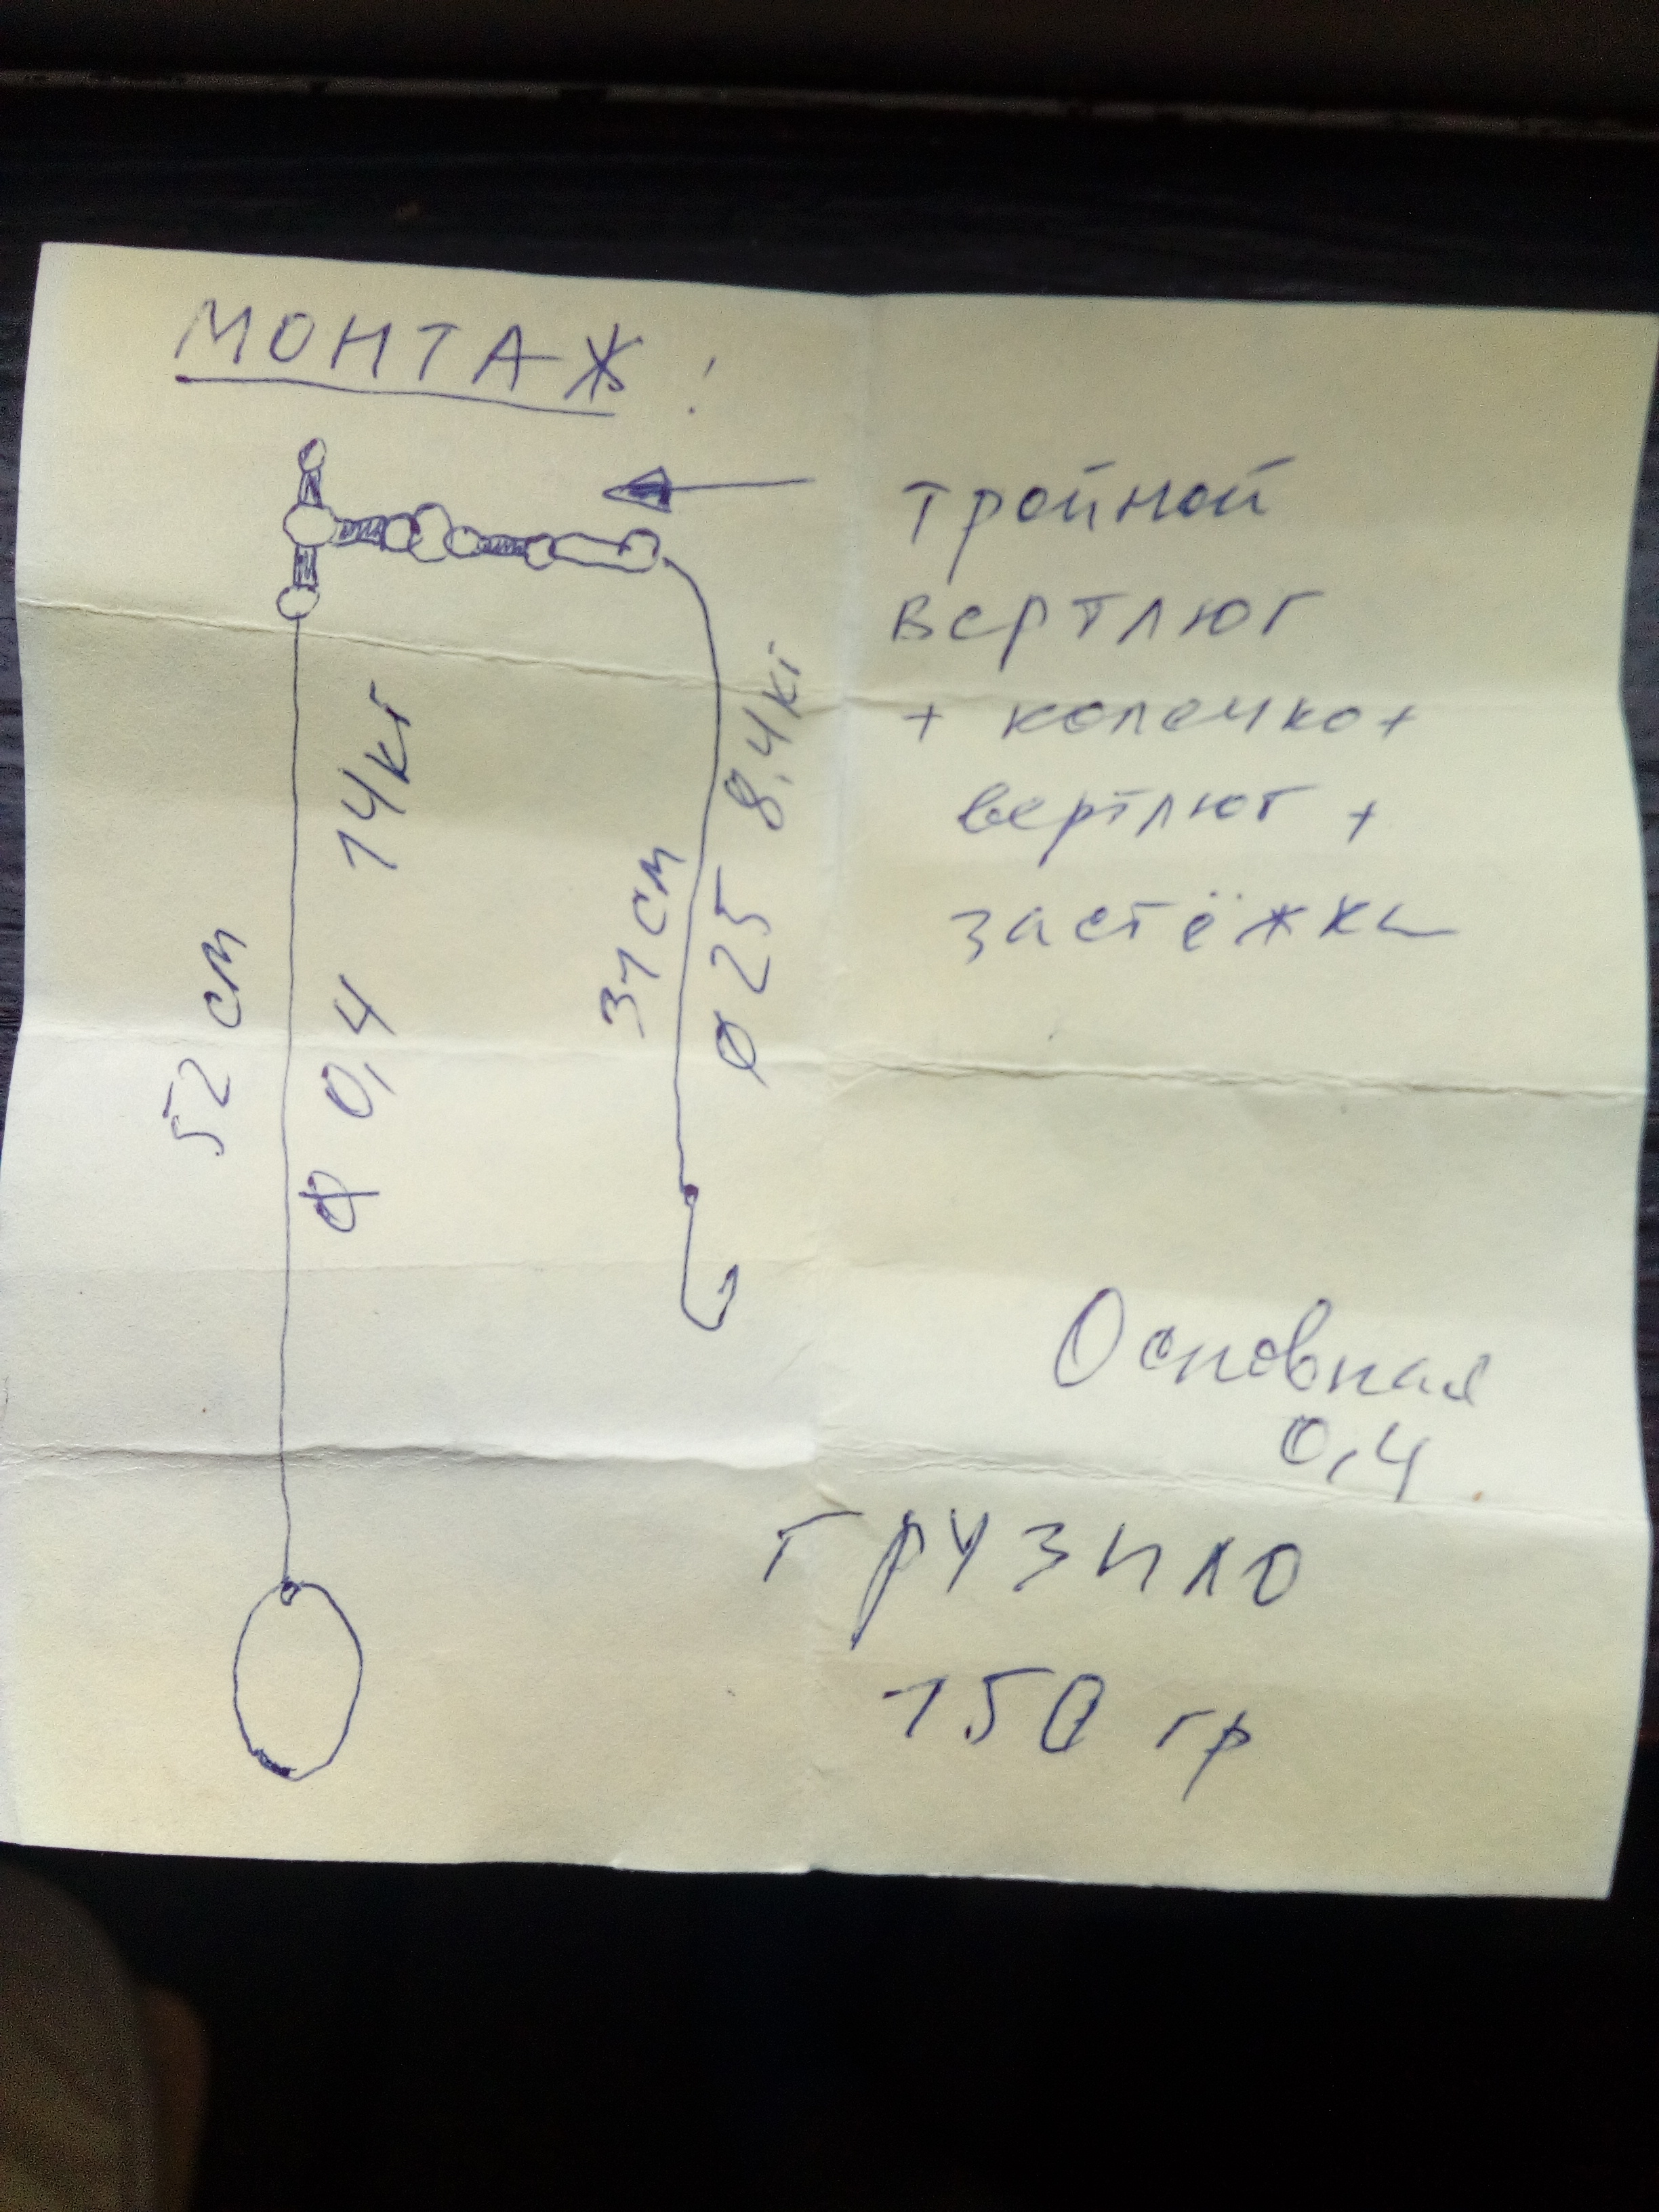 МОНТАЖ:
тройной
вертлюг
+ колечко +
вертлюг +
застёжка
52 см
ф 0,4 14кг
31 см
ø 25 8,4кг
Основная
0,4
грузило
150 гр